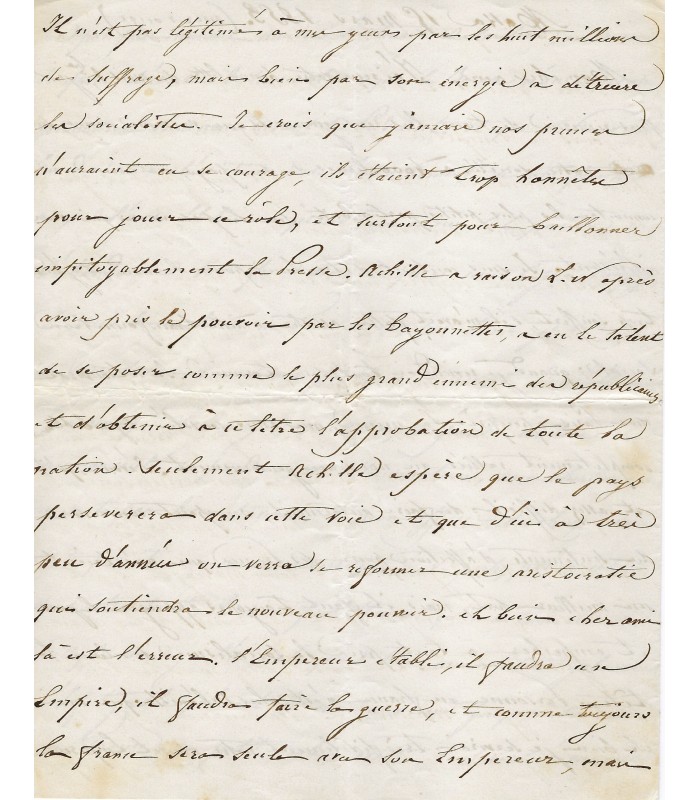 Il n'est pas légitimé à mes yeux par les huit millions
de suffrage, mais bien par son énergie à détruire
les socialistes. Je crois que jamais nos princes
n'auraient eu se courage, ils étaient trop honnêtes
pour jouer ce rôle, et surtout pour baillonner
impitoyablement la Presse. Achille a raison L. N après
avoir pris le pouvoir par les bayonnettes, a eu le talent
de se poser comme le plus grand ennemi des républicains
et d'obtenir à ce titre l'approbation de toute la
nation. Seulement Achille espère que le pays
perseverera dans cette voie et que d'ici à très
peu d'année on verra se reformer une aristocratie
qui soutiendra le nouveau pouvoir. eh bien cher ami
là est l'erreur. l'Empereur établi, il faudra un
Empire, il faudra faire la guerre, et comme toujours
la france sera seule avec son Empereur, mais